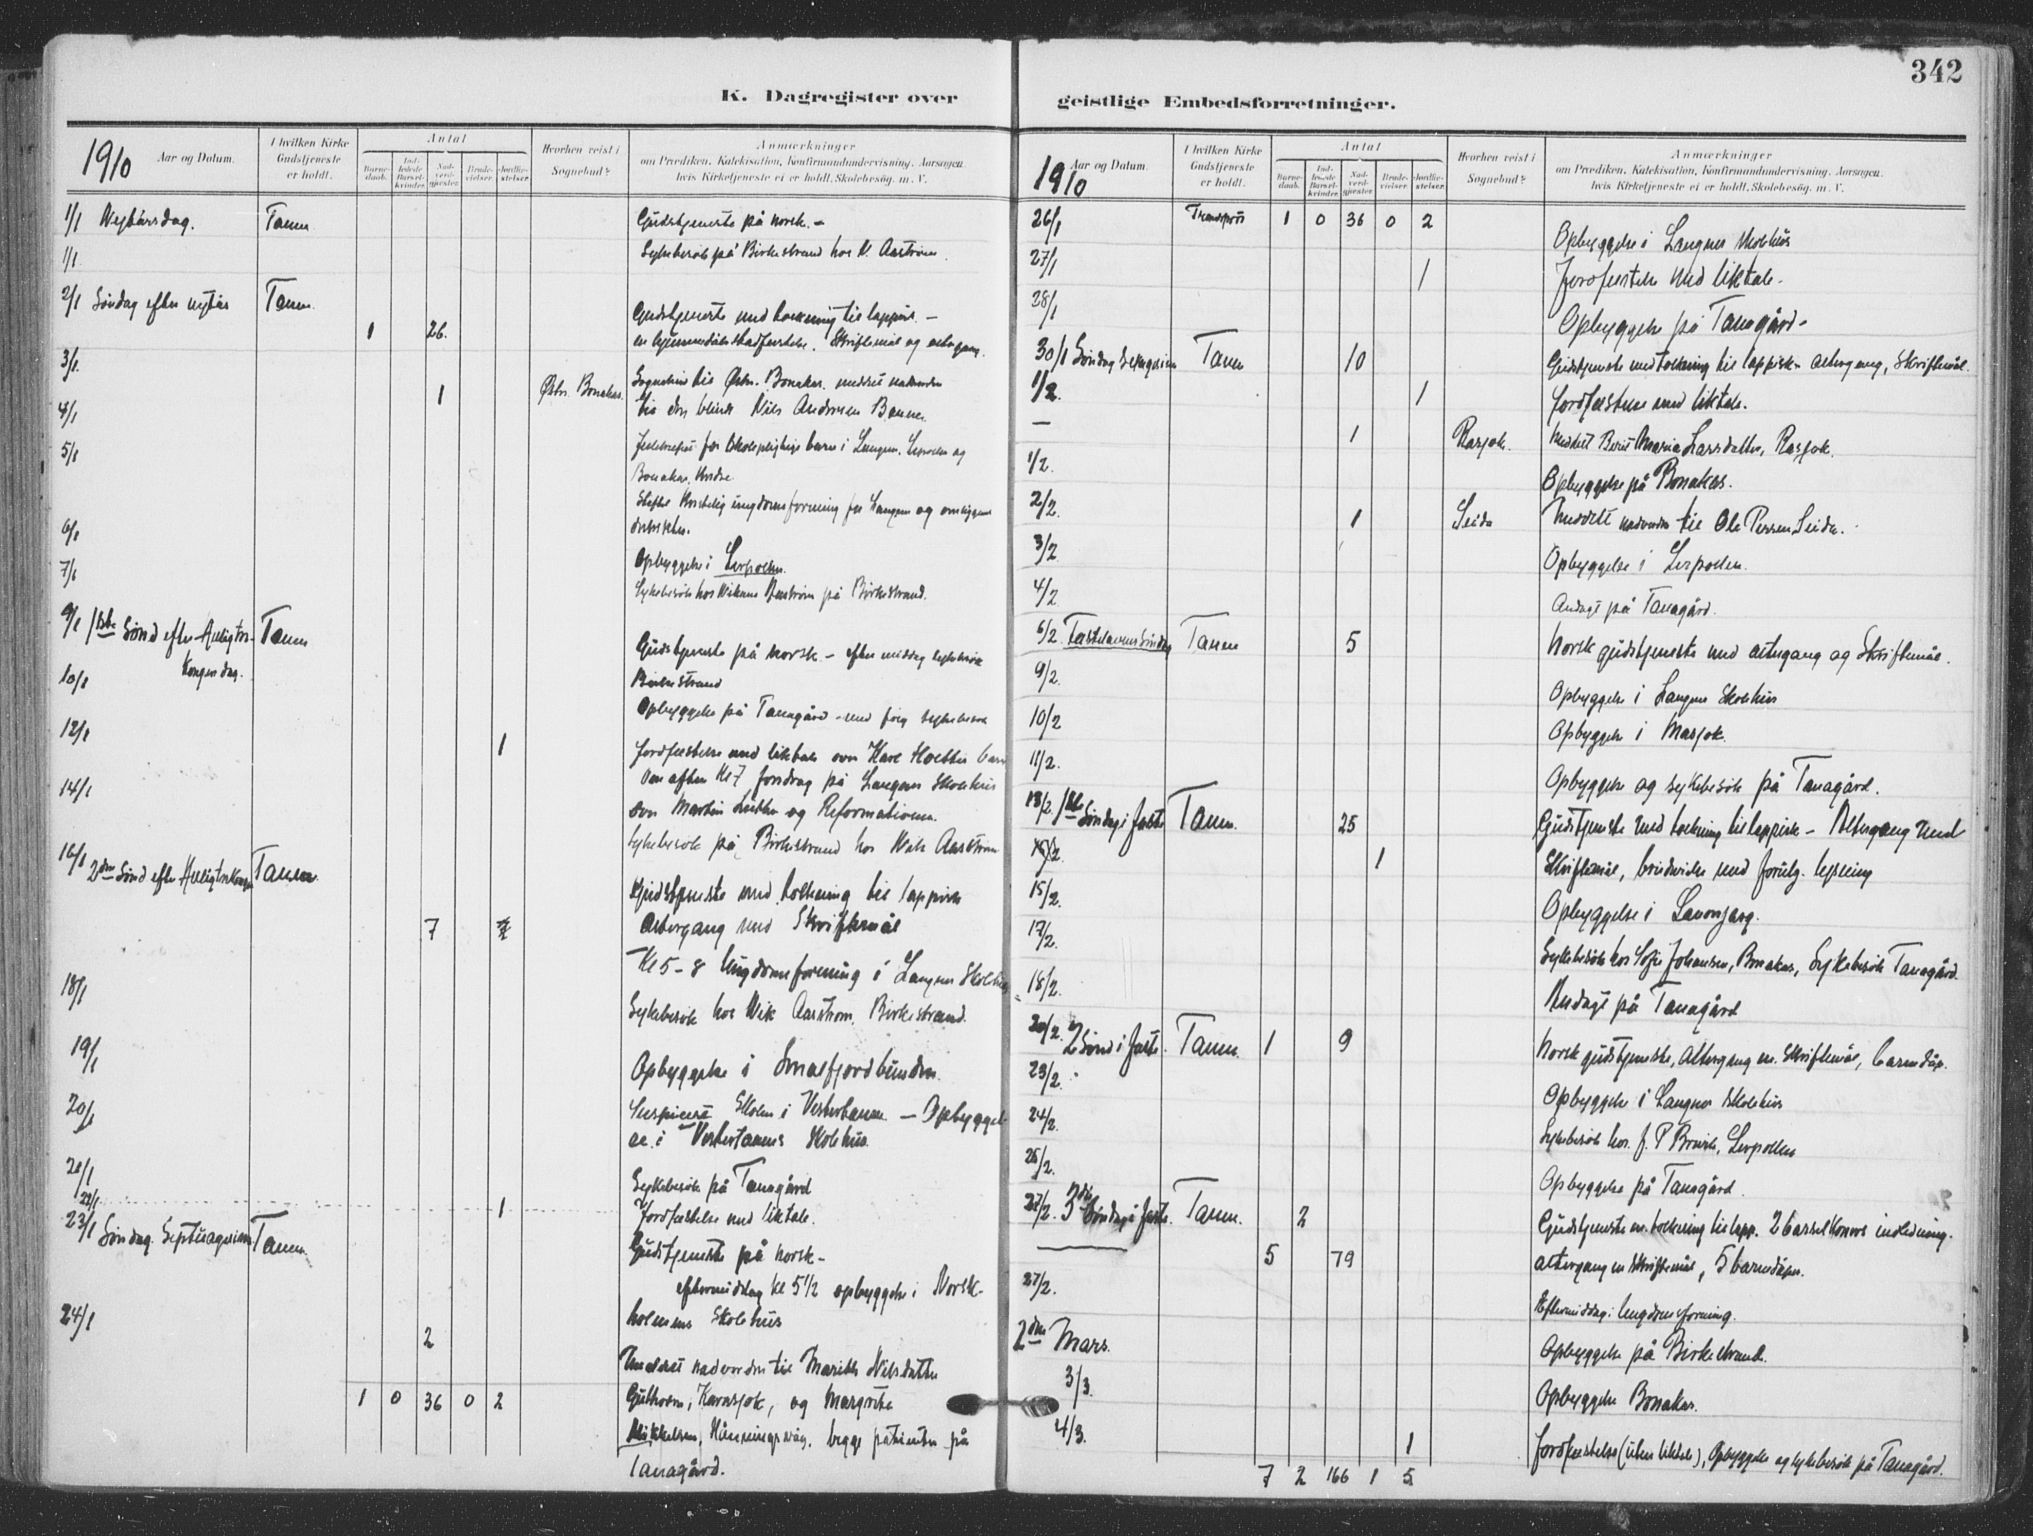 K. Dagregister over
1910
Aar og Datum.
I hvilken Kirke
Gudstjeneste
er holdt.
Antal
Barne-
daab.
Ind-
ledede
Barsel-
kvinder.
Nad-
verd-
gjester.
Brude-
vielser.
Jordfæ-
stelser.
Hvorhen reist i
Sognebud?
Anmærkninger
om Prædiken, Katekisation, Konfirmandundervisning. Aarsagen
hvis Kirketjeneste ei er holdt. Skolebesøg. m. V.
1/1 Nytårsdag. Tanen Gudstjeneste på norsk. -
1/1 Sykebesøk på Birkestrand hos N. Aastrøm.
2/1 Søndag efter nytår Tanen. Gudstjeneste med tolkning til lappisk. -
1 26. en hjemmedåb stadfæstelse. Skriftemål og altergang.
3/1. Østr. Bonakas. Sognebud til Østr. Bonakas. meddelt nadverden
4/1 1 til den blinde Nils Andersen Banne.
5/1 Juletræfest for skolepligtige barn i Langnes, Leirpollen og
Bonakas kredse.
Stiftet kristelig ungdomsforening for Langnes og omliggende
distrikter.
6/1
7/1 Opbyggelse i Leirpollen.
Sykebesøk hos Nikane Aastrøm på Birkestrand.
9/1 1ste Sønd efter Helligtre- Tanen Gudstjeneste på norsk - efter middag sykebesøk
Kongersdag. Birkestrand
10/1 Opbyggelse på Tanagård - med sykebesøk
12/1 1 Jordfæstelse med liktale over barn
Om aften Kl 7 foredrag på Langnes Skolehus
14/1 om Martin Luther og Reformationen.
Sykebesøk på Birkestrand hos Nik Aastrøm
16/1 2den Sønd efter Helligtrekonger Tanen. Gudstjeneste med tolkning til lappisk
7 Altergang med Skriftemål
Kl 5-8 Ungdomsforening i Langnes Skolehus
18/1 Sykebesøk hos Nik Aastrøm. Birkestrand.
19/1 Opbyggelse i Smalfjordbunden.
20/1 Inspiceret Skolen i Vestertanen - Opbyggel-
se i Vestertanens Skolehus
21/1 Sykebesøk på Tanagård
22/1 1 Jordfæstelse med liktale.
23/1 Søndag Septuagesima Tanen. Gudstjeneste på norsk -
eftermiddag Kl 5 1/2 opbyggelse i Norsk-
holmens Skolehus
24/1 2 Meddelt nadverden til Marith Nilsdatter
1 0 36 0 2 Karasjok, og Margrete
Mikkelsen, Honningsvåg, begge patienter på
Tanagård.
342
geistlige Embedsforretninger.
1910
Aar og Datum.
I hvilken Kirke
Gudstjeneste
er holdt.
Antal
Barne-
daab.
Ind-
ledede
Barsel-
kvinder.
Nad-
verd-
gjester.
Brude-
vielser.
Jordfæ-
stelser.
Hvorhen reist i
Sognebud?
Anmærkninger
om Prædiken, Katekisation, Konfirmandundervisning. Aarsagen
hvis Kirketjeneste ei er holdt. Skolebesøg. m. V.
26/1 Transport 1 0 36 0 2 Opbyggelse i Langnes skolehus
27/1 1 Jordfæstelse med liktale.
28/1 Opbyggelse på Tanagård.
30/1 Søndag Sexagesima Tanen 10 Gudstjeneste med tolkning til lappisk - altergang, Skriftemål.
1/2. 1 Jordfæstelse med liktale.
— 1 Rasjok. Meddelt Berit Maria Larsdatter, Rasjok.
1/2. Opbyggelse på Bonakas.
2/2. 1 Seida Meddelt nadverden til Ole Persen Seida.
3/2 Opbyggelse i Leirpollen.
4/2 Andagt på Tanagård.
6/2. Fastelavnssøndag Tanen 5 Norsk gudstjeneste med altergang og Skriftemål.
9/2. Opbyggelse i Langnes Skolehus
10/2 Opbyggelse i Masjok.
11/2. Opbyggelse og sykebesøk på Tanagård.
13/2. 1ste Søndag i faste Tanen. 25 Gudstjeneste med tolkning til lappisk - Altergang med
1 Skriftemål, brudevielse med forutg. lysning
15/2. Opbyggelse i
17/2. Sykebesøk hos Sofie Johansen, Bonakas, Sykebesøk Tanagård
18/2. Andagt på Tanagård
20/2. 2 Sønd i faste. Tanen. 1 9 Norsk gudstjeneste, Altergang m. Skriftemål, barnedåp.
23/2. Opbyggelse i Langnes Skolehus
24/2. Sykebesøk hos J. P. Leirpollen
25/2. Opbyggelse på Tanagård.
27/2. 3die Søndag i faste. Tanen. 2 Gudstjeneste m. tolkning til lapp. 2 barselkoners indledning.
5 79 altergang m Skriftemål, 5 barnedåper.
27/2. Eftermiddag: Ungdomsforening.
2den Mars. Opbyggelse på Birkestrand.
3/3. Opbyggelse Bonakas.
4/3. 1 Jordfæstelse (uten liktale), Opbyggelse og sykebesøk på Tanagård.
7 2 166 1 5